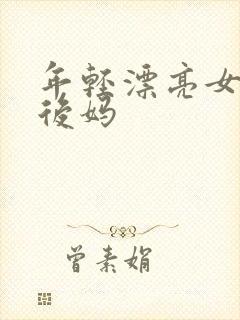 年轻漂亮女
後妈
曾素娟